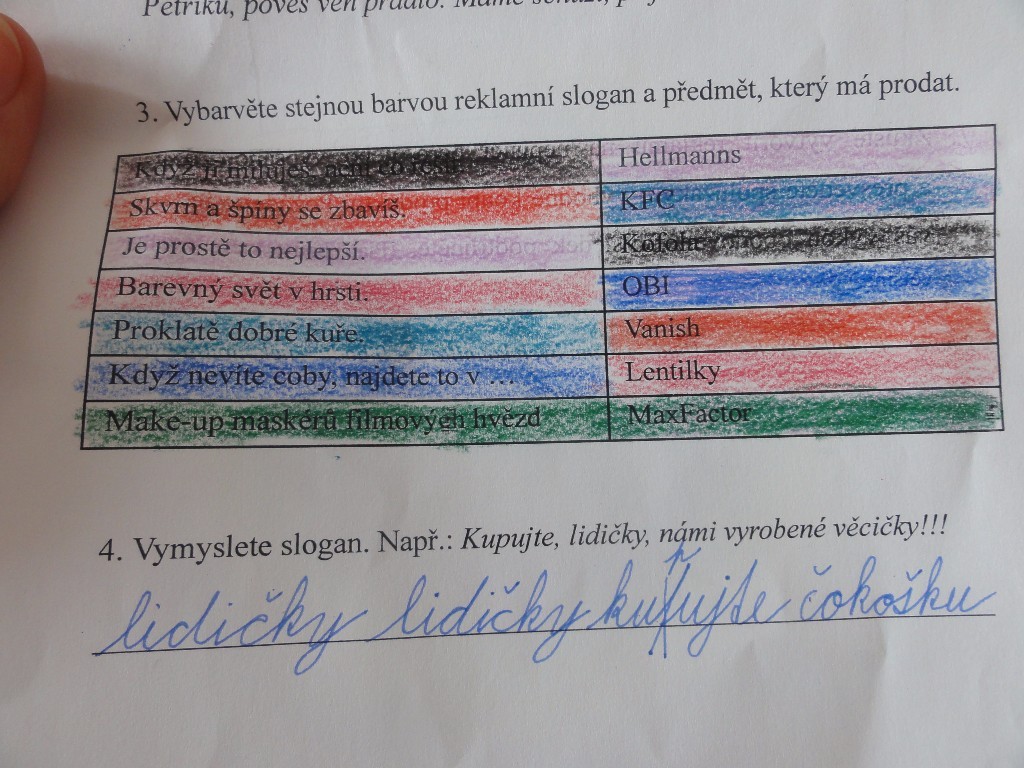 Petříku, pověs ven prádlo.
3. Vybarvěte stejnou barvou reklamní slogan a předmět, který má prodat.
Když ji miluješ, není co řešit. Hellmanns
Skvrn a špíny se zbavíš. KFC
Je prostě to nejlepší. Kofola
Barevný svět v hrsti. OBI
Proklatě dobré kuře. Vanish
Když nevíte coby, najdete to v … Lentilky
Make-up maskérů filmových hvězd MaxFactor
4. Vymyslete slogan. Např.: Kupujte, lidičky, námi vyrobené věcičky!!!
lidičky lidičky kupujte čokošku